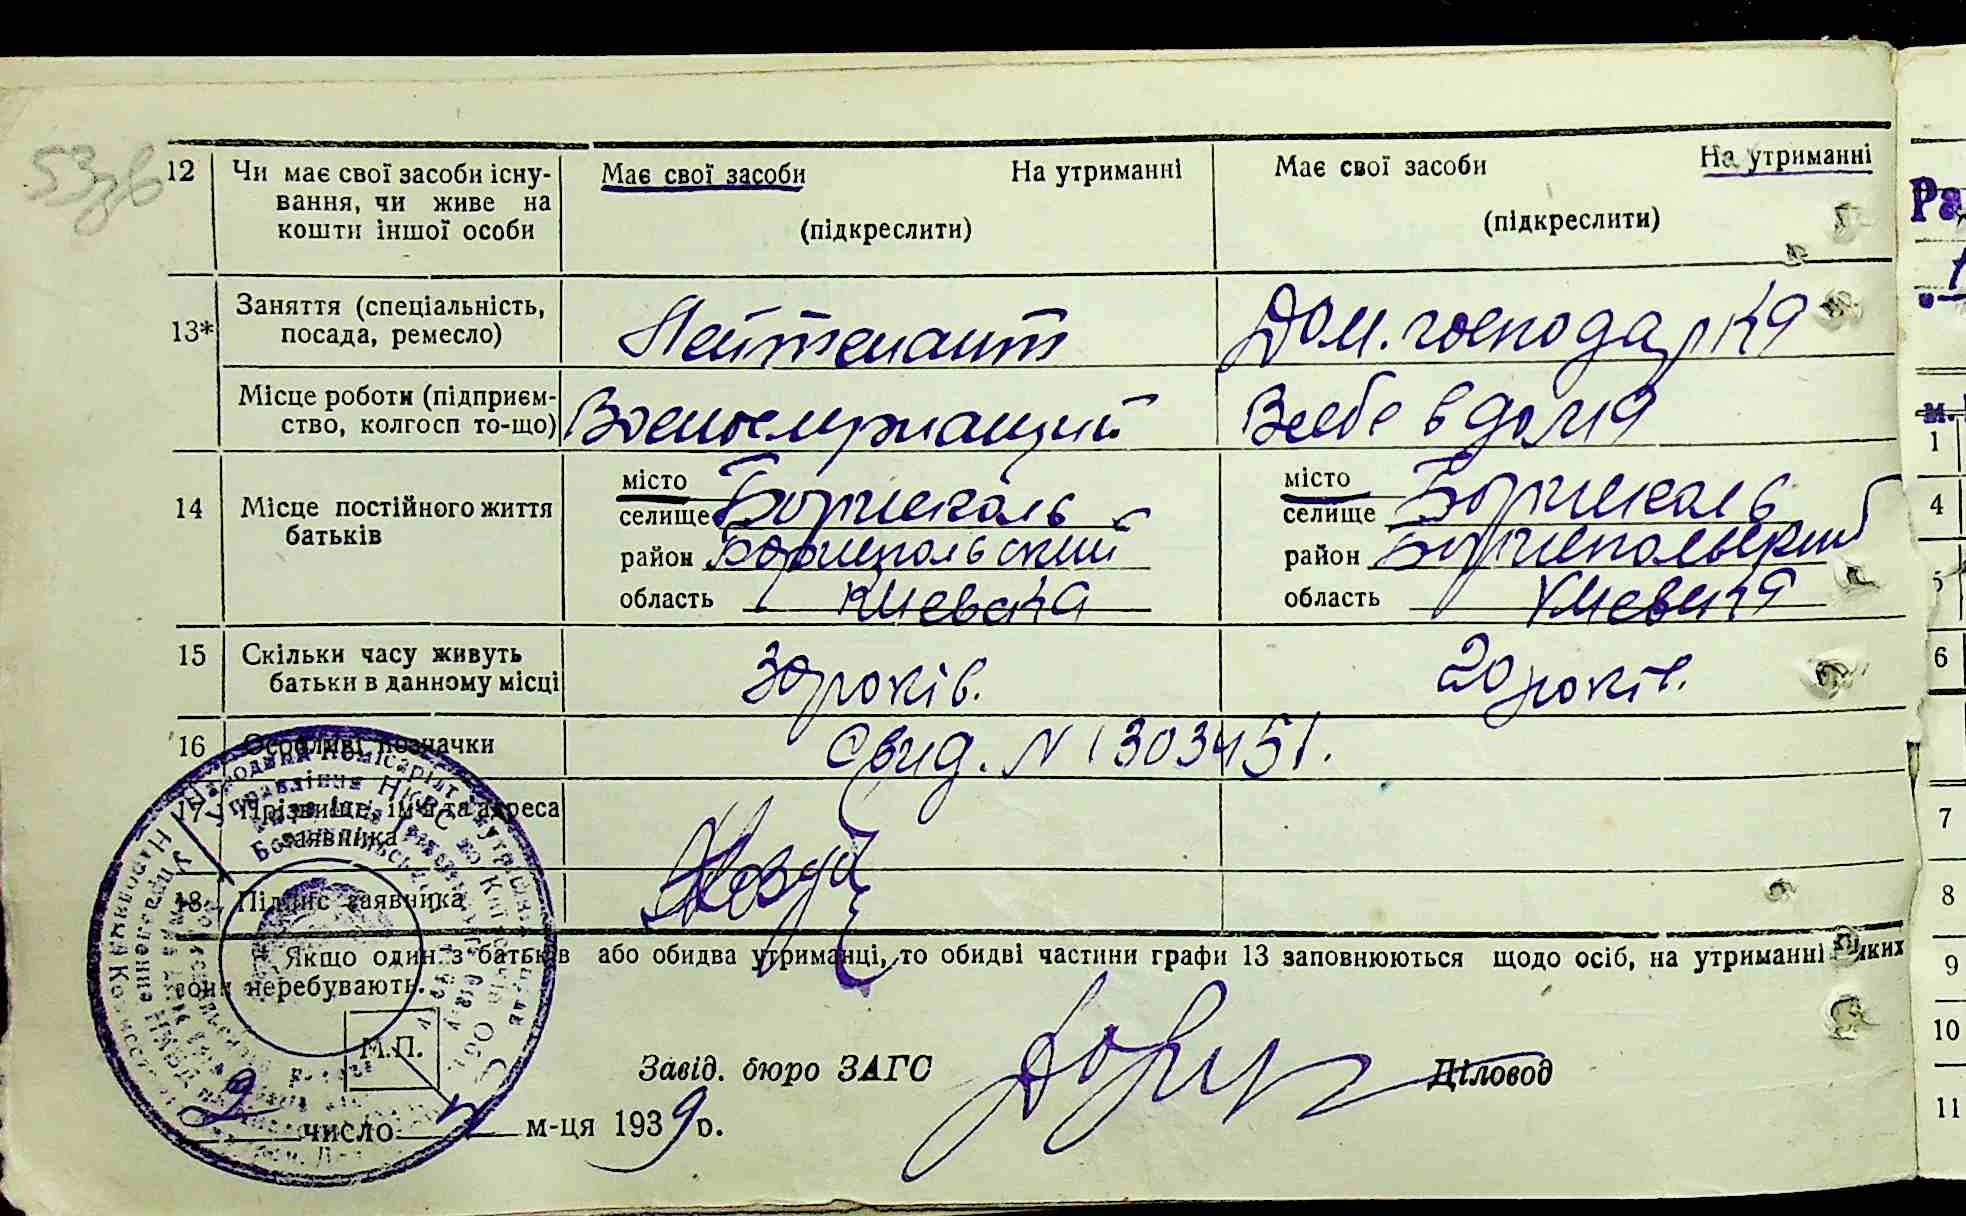 53зв
12 Чи має свої засоби існу- Має свої засоби На утриманні Має свої засоби На утриманні
вання, чи живе на (підкреслити) (підкреслити)
кошти іншої особи
13* Заняття (спеціальність, Лейтенант Дом. господарка
посада, ремесло)
Місце роботи (підприєм- Военослужащий В себе в дома
ство, колгосп то-що)
14 Місце постійного життя місто місто
батьків селище Бориспіль селище Бориспіль
район Бориспольский район Бориспольский
область Киевська область Киевська
15 Скільки часу живуть 30 років. 20 років.
батьки в данному місці
16 Особливі позначки Свид. N 1303451.
17 Прізвище, ім'я та адреса
заявника
18 Підпис заявника
Якщо один з батьків або обидва утриманці, то обидві частини графи 13 заповнюються щодо осіб, на утриманні яких
вони перебувають.
М.П.
Завід. бюро ЗАГС Діловод
2 число м-ця 1939 р.
Ра
м.
1
4
5
6
7
8
9
10
11